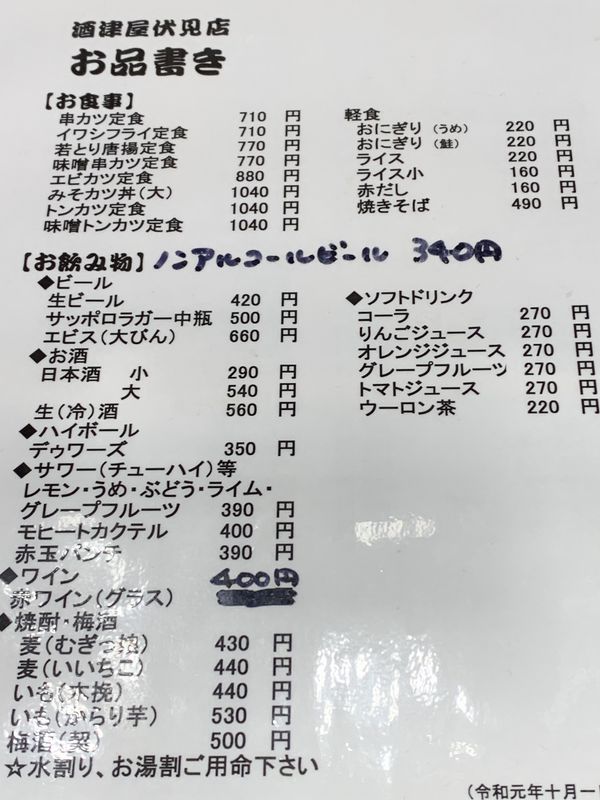 酒津屋伏見店
お品書き
【お食事】
串カツ定食 710 円
イワシフライ定食 710 円
若とり唐揚定食 770 円
味噌串カツ定食 770 円
エビカツ定食 880 円
みそカツ丼(大) 1040 円
トンカツ定食 1040 円
味噌トンカツ定食 1040 円
軽食
おにぎり(うめ) 220 円
おにぎり(鮭) 220 円
ライス 220 円
ライス小 160 円
赤だし 160 円
焼きそば 490 円
【お飲み物】 ノンアルコールビール 340円
◆ビール
生ビール 420 円
サッポロラガー中瓶 500 円
エビス(大びん) 660 円
◆お酒
日本酒 小 290 円
大 540 円
生(冷)酒 560 円
◆ハイボール
デゥワーズ 350 円
◆サワー(チューハイ)等
レモン・うめ・ぶどう・ライム・
グレープフルーツ 390 円
モヒートカクテル 400 円
赤玉パンチ 390 円
◆ワイン 400円
赤ワイン(グラス)
◆焼酎・梅酒
麦(むぎっ娘) 430 円
麦(いいちこ) 440 円
いも(木挽) 440 円
いも(からり芋) 530 円
梅酒(契) 500 円
☆水割り、お湯割ご用命下さい
◆ソフトドリンク
コーラ 270 円
りんごジュース 270 円
オレンジジュース 270 円
グレープフルーツ 270 円
トマトジュース 270 円
ウーロン茶 220 円
(令和元年十月一